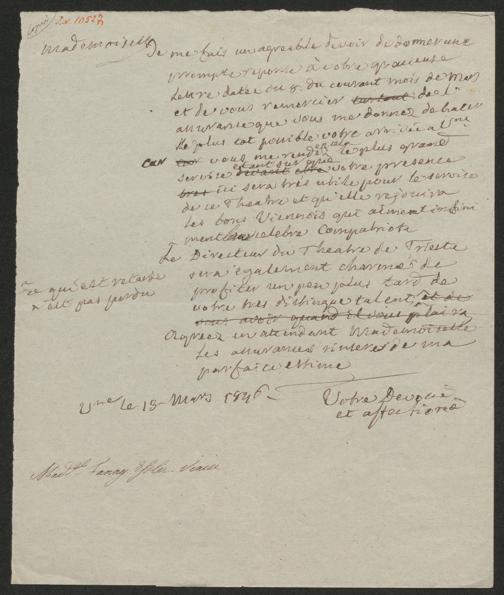 Copie
Mademoiselle
Je me fais un agreable devoir de donner une
prompte reponse à votre gracieuse
Lettre datée du 8 du courant mois de Mars
et de vous remercier surtout de l'
assurance que vous me donnez de hater
le plus tot possible votre arrivée a Vne
car vous me rendez en cela le plus grand
service etant sur que votre presence
ici sera très utile pour le service
de ce Theatre et qu'elle rejouira
les bons Viennois qui aiment infini
ment celebre Compatriote
Le Directeur du Theatre de Trieste
sera egalement charmé de
profiter un peu plus tard de
votre tres distingue talent et de
vous avoir quand il vous plaira
ce qui est retardé
n'est pas perdu
Agreez en attendant Mademoiselle
les assurances sinceres de ma
parfaite estime
Vne le 13 Mars 1846
Votre Devoué
et affectioné
Madlle Fanny Elsler